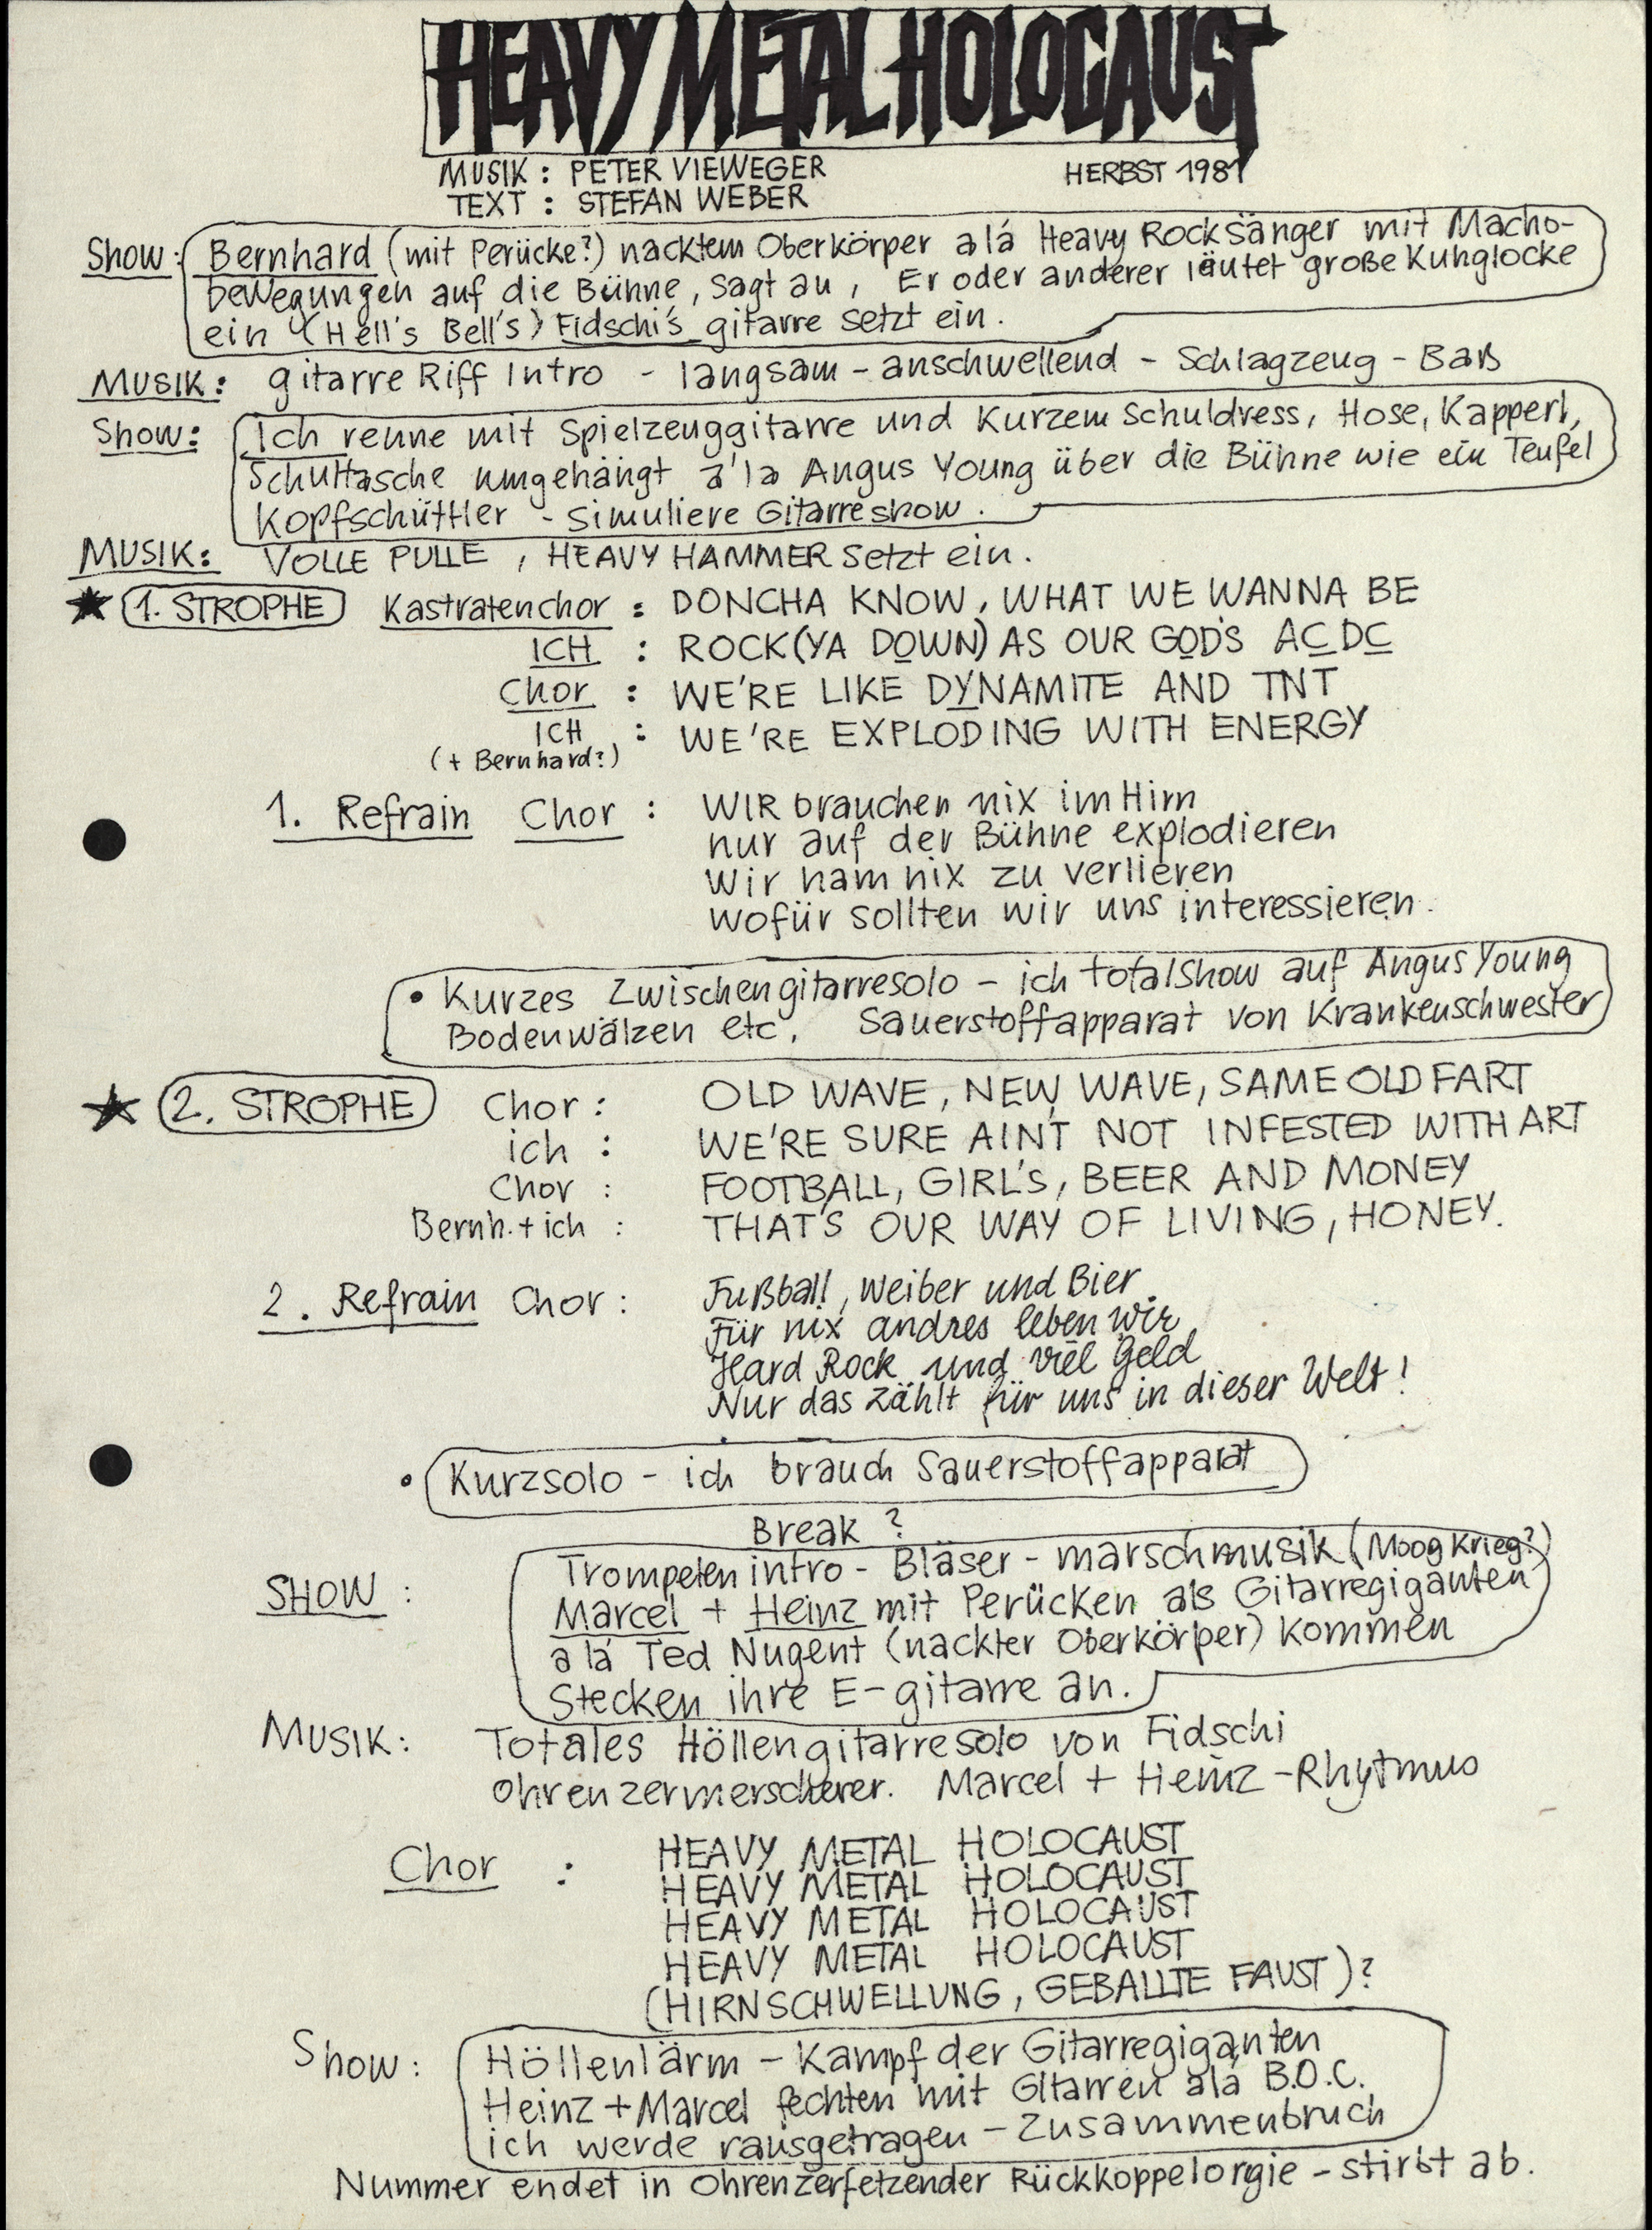 HEAVY METAL HOLOCAUST
MUSIK : PETER VIEWEGER
HERBST 1981
TEXT : STEFAN WEBER
Show: Bernhard (mit Perücke?) nacktem Oberkörper alá Heavy Rocksänger mit Macho-
bewegungen auf die Bühne, sagt au, Er oder anderer läutet große Kuhglocke
ein (Hell's Bell's) Fidschi's gitarre setzt ein.
MUSIK: gitarre Riff Intro - langsam - anschwellend - Schlagzeug - Baß
Show: Ich renne mit Spielzeuggitarre und Kurzem Schuldress, Hose, Kapperl,
Schultasche umgehängt a'la Angus Young über die Bühne wie ein Teufel
Kopfschüttler - simuliere Gitarreshow.
MUSIK: VOLLE PULLE, HEAVY HAMMER setzt ein.
★ 1. STROPHE Kastratenchor : DONCHA KNOW, WHAT WE WANNA BE
ICH : ROCK (YA DOWN) AS OUR GOD'S ACDC
Chor : WE'RE LIKE DYNAMITE AND TNT
ICH : WE'RE EXPLODING WITH ENERGY
(+ Bernhard?)
1. Refrain Chor : WIR brauchen nix im Hirn
nur auf der Bühne explodieren
Wir ham nix zu verlieren
wofür sollten wir uns interessieren.
• Kurzes Zwischengitarresolo - ich totalshow auf Angus Young
Bodenwälzen etc. Sauerstoffapparat von Krankenschwester
★ 2. STROPHE Chor : OLD WAVE, NEW WAVE, SAME OLD FART
ich : WE'RE SURE AIN'T NOT INFESTED WITH ART
Chor : FOOTBALL, GIRL'S, BEER AND MONEY
Bernh. + ich : THAT'S OUR WAY OF LIVING, HONEY.
2. Refrain Chor : Fußball, Weiber und Bier.
Für nix andres leben wir
Hard Rock und viel Geld
Nur das zählt für uns in dieser Welt!
• Kurzsolo - ich brauch Sauerstoffapparat
Break ?
SHOW : Trompeten intro - Bläser - marschmusik (Moog Krieg?)
Marcel + Heinz mit Perücken als Gitarregiganten
a lá Ted Nugent (nackter Oberkörper) kommen
Stecken ihre E-gitarre an.
MUSIK: Totales Höllengitarresolo von Fidschi
ohrenzermerscherer. Marcel + Heinz - Rhytmus
Chor : HEAVY METAL HOLOCAUST
HEAVY METAL HOLOCAUST
HEAVY METAL HOLOCAUST
HEAVY METAL HOLOCAUST
(HIRNSCHWELLUNG, GEBALLTE FAUST)?
Show: Höllenlärm - Kampf der Gitarregiganten
Heinz + Marcel fechten mit Gitarren alá B.O.C.
ich werde rausgetragen - Zusammenbruch
Nummer endet in Ohrenzerfetzender Rückkoppelorgie - stirbt ab.